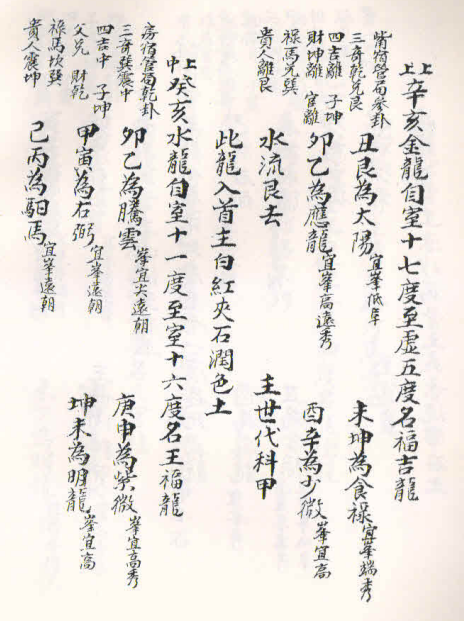 上上辛亥金龍自室十七度至虛五度名福吉龍
觜宿管局參卦
三奇乾兌艮
四吉離 子坤
財坤離 官離
祿馬兌巽
貴人離艮
丑艮為太陽宜峯低年
未坤為食祿宜峯端秀
卯乙為應龍宜峯高遠秀
酉辛為少微峯宜高
水流艮去
主世代科甲
此龍入首主白紅夾石潤色土
上中癸亥水龍自室十一度至室十六度名王福龍
房宿管局乾卦
三奇巽震中
四吉中 子坤
父兌 財乾
祿馬坎巽
貴人震坤
卯乙為騰雲峯宜尖遠朝
庚申為紫微峯宜高秀
甲寅為右弼宜峯遠朝
坤未為明龍峯宜高
己丙為馹馬宜峯遠朝